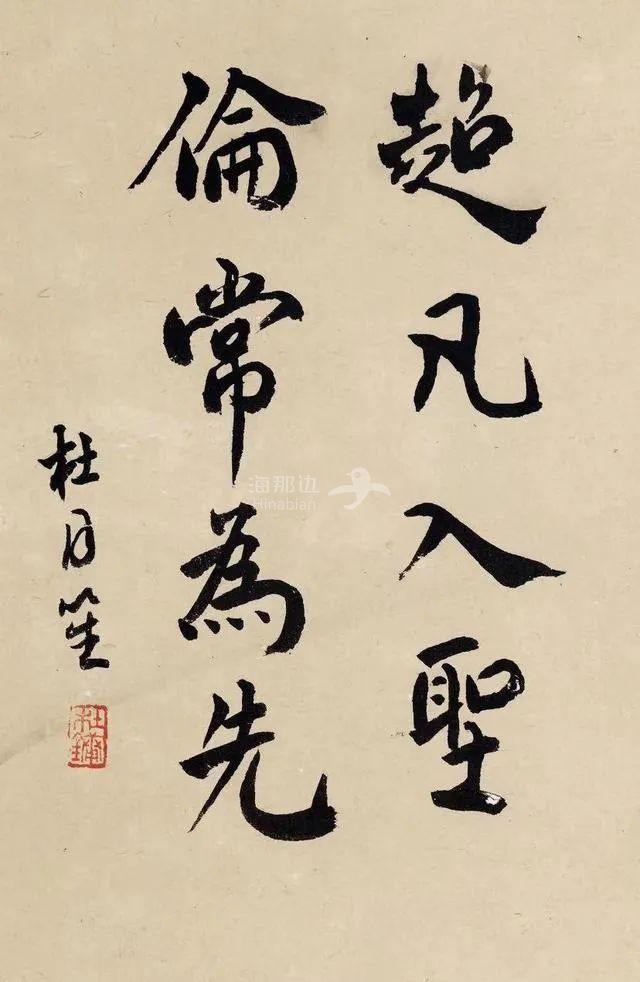 超凡入聖
倫常為先
杜月笙
杜鏞
海那边
Hinabian